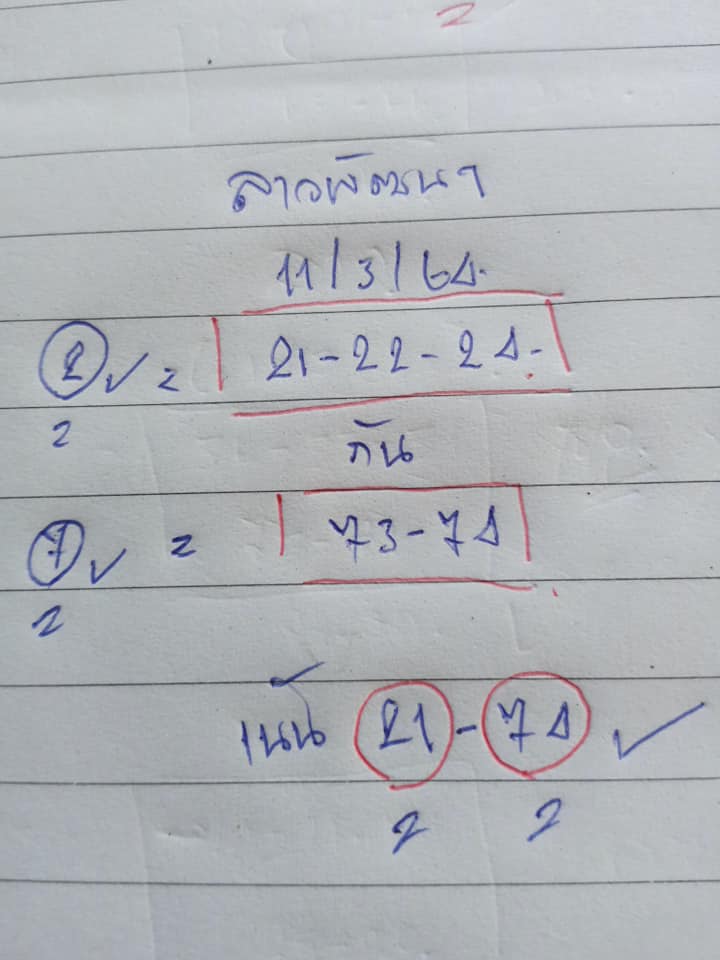 2
ลาวพัฒนา
11/3/64.
2 ✓ = 21-22-24.
2
กัน
7 ✓ = 73-74
2
เน้น 21-74 ✓
2 2